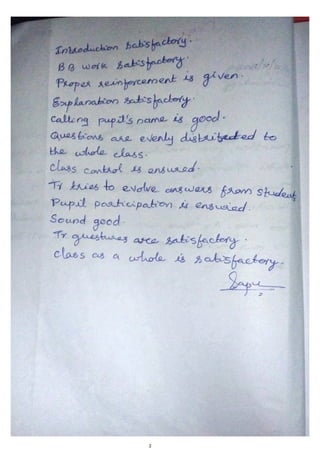 Introduction satisfactory.
BB work satisfactory.
Proper reinforcement is given.
Explanation satisfactory.
Calling pupil's name is good.
Questions are evenly distributed to
the whole class.
Class control is ensured.
Tr tries to evolve answers from students
Pupil participation is ensured.
Sound good.
Tr guestures are satisfactory.
class as a whole is satisfactory.
2